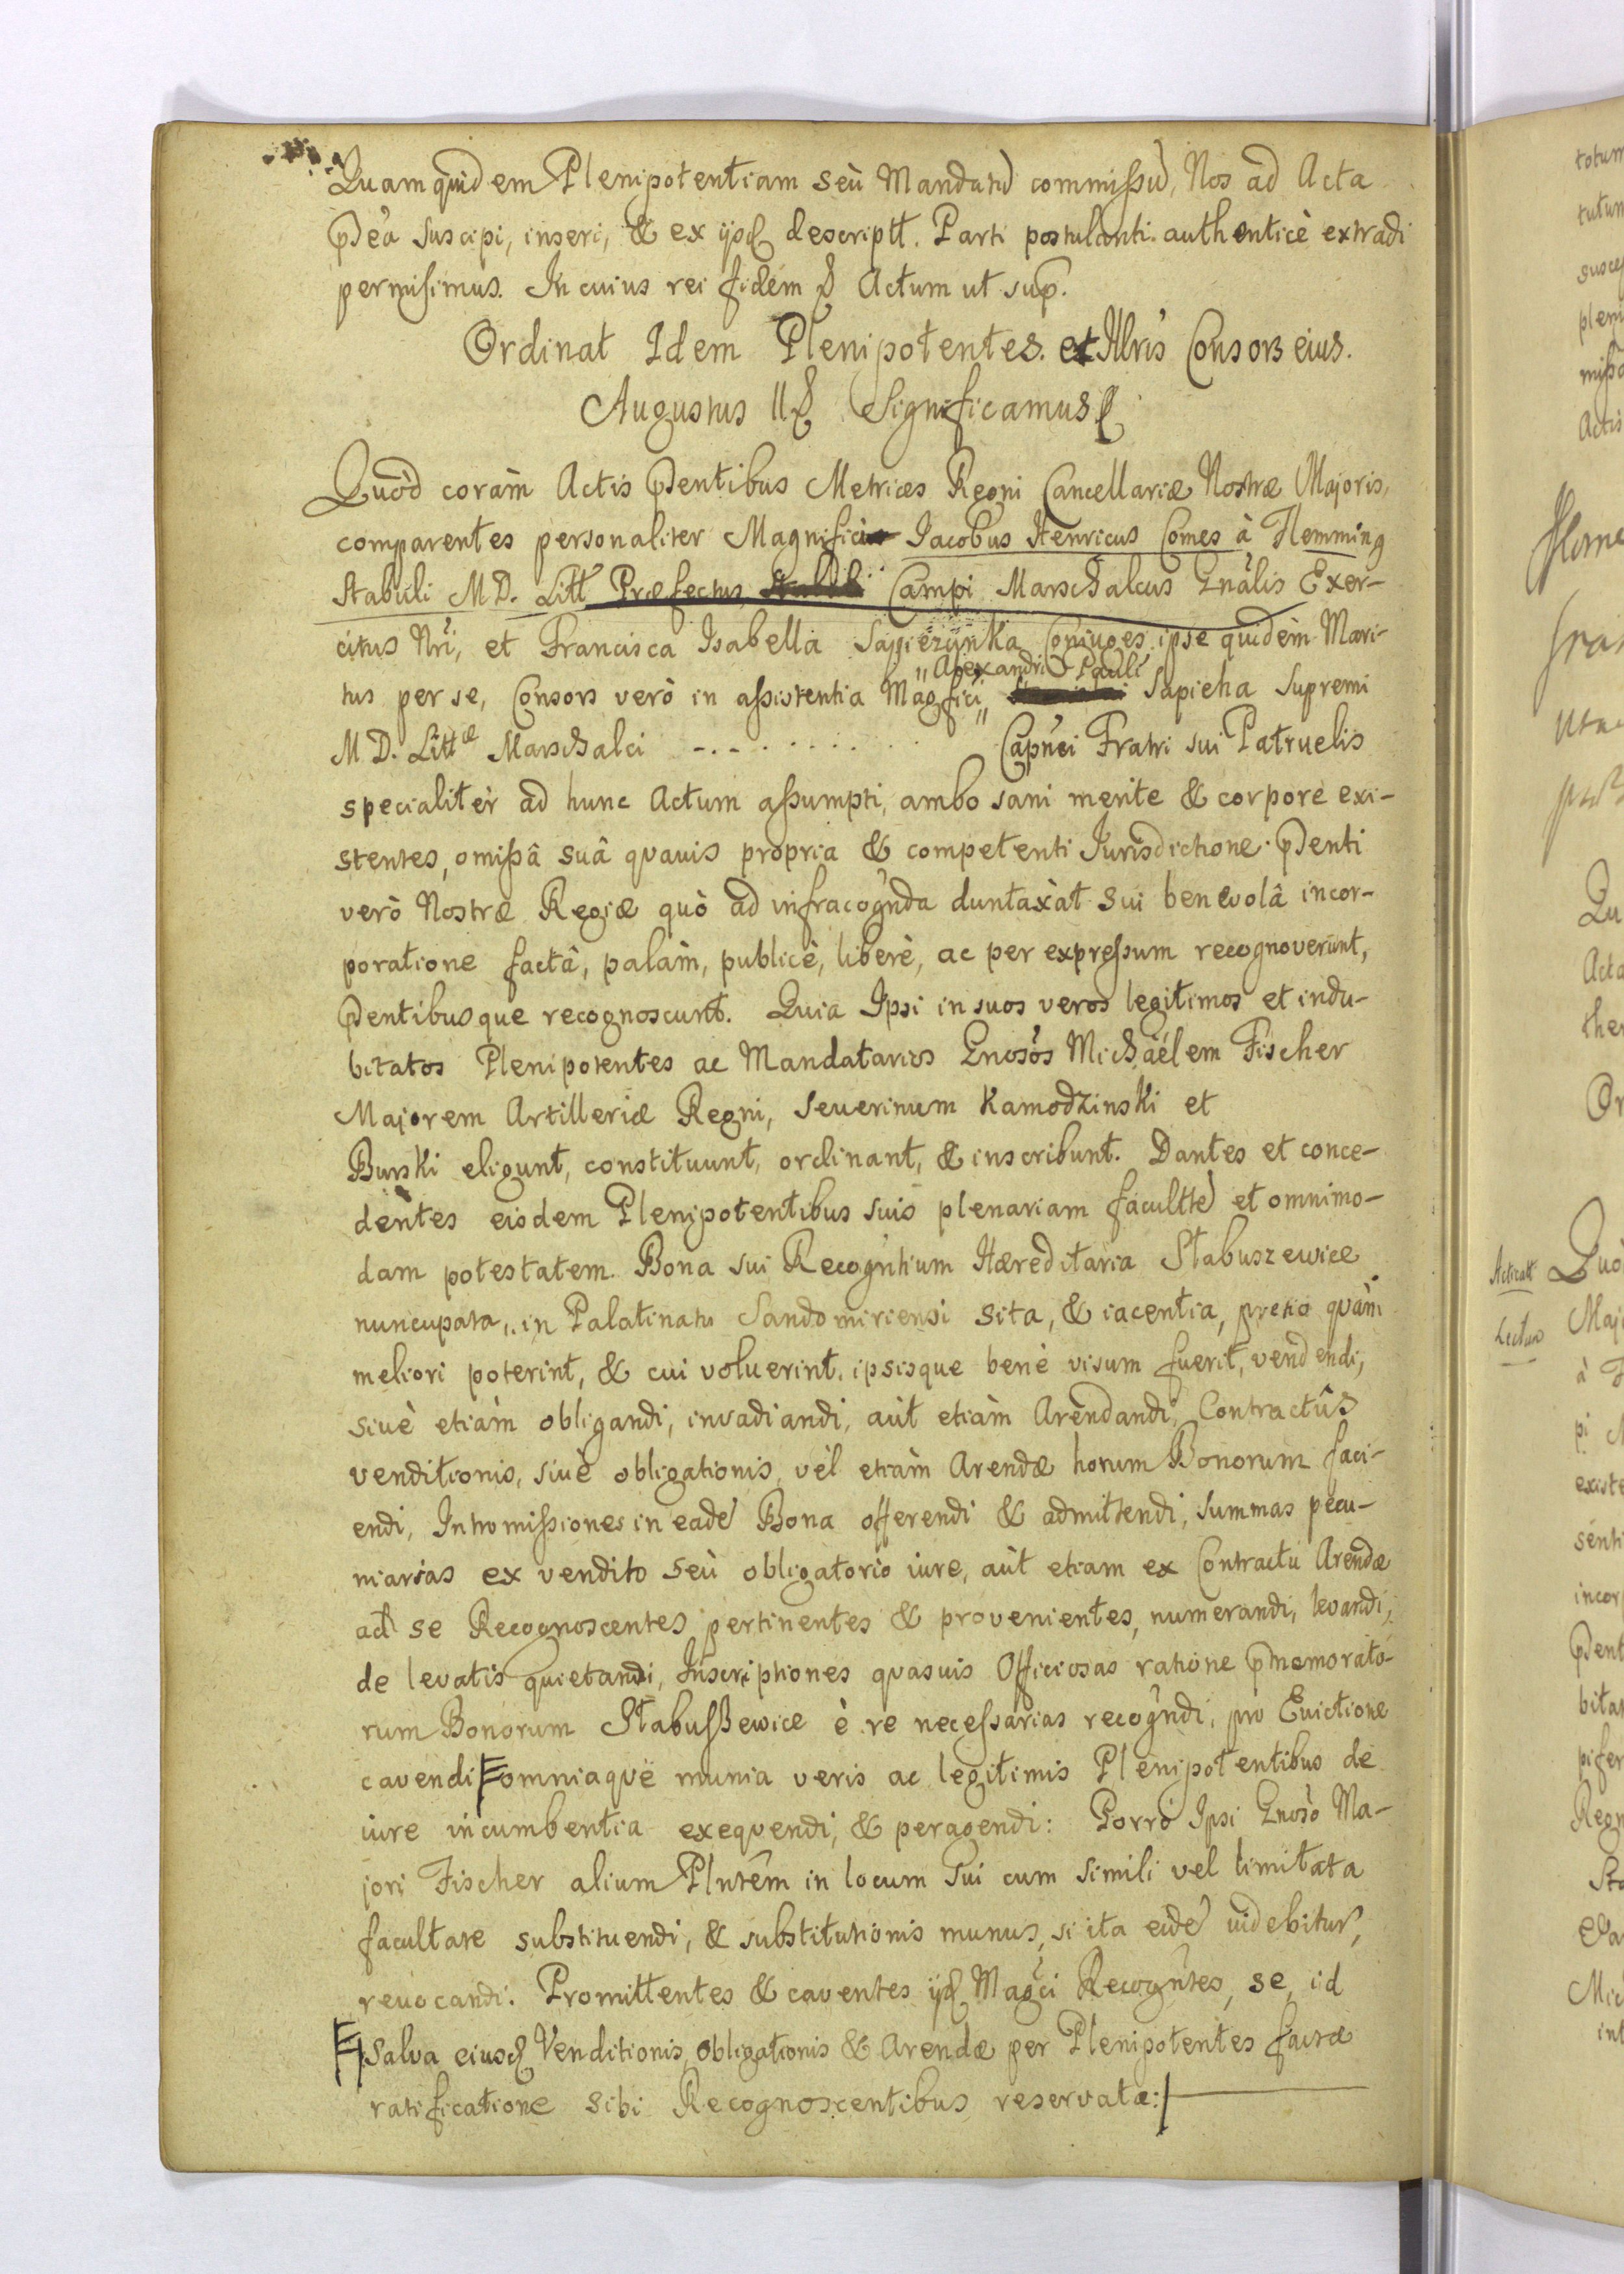 Quamquidem Plenipotentiam seù Mandatũ commißũ, Nos ad Acta
p̃ñtia suscipi, inseri, & ex ijsd. descriptt. Parti postulanti authenticè extradi
permisimus. In cuius rei fidem & Actum ut sup.
Ordinat Idem Plenipotentes. et Illris Consors eius.
Augustus II & Significamus &
Quòd coràm Actis p̃ntibus Metrices Regni Cancellariæ Nostræ Majoris,
comparentes personaliter Magnifici Iacobus Henricus Comes à Flemming
Stabuli M D. Litt Præfectus Campi Marschalcus Gnãlis Exer-
citus Nri, et Francisca Isabella Sapiezanka Coniuges, ipse quidèm Mari-
Alexandri Pauli
tus per se, Consors verò in assistentia Magfici Sapieha Supremi
M D. Littæ Marschalci - . - . . . . . . . Capnei Fratri sui Patruelis
specialitèr ad hunc Actum aßumpti, ambo sani mente & corpore exi-
stentes, omißâ suâ quavis propria & competenti Iurisdictione. p̃senti
verò Nostræ Regiæ quò ad infracognda duntaxàt sui benevolâ incor-
poratione factâ, palàm, publicè, liberè, ac per expreßum recognoverunt,
p̃sentibusque recognoscunt. Quia Ipsi in suos veros legitimos et indu-
bitatos Plenipotentes ac Mandatarios Gnosos Michäélem Fischer
Majorem Artilleriæ Regni, Severinum Kamodzinski et
Burski eligunt, constituunt, ordinant, & inscribunt. Dantes et conce-
dèntes eisdem Plenipotentibus suis plenariam facultẽ et omnimo-
dam potestatem. Bona sui Recogntium Hæreditaria Stabuszewice
nuncupata, in Palatinatu Sandomiriensi sita, & iacentia, pretio quàm
meliori poterint, & cui voluerint, ipsisque benè visum fuerit, vendendi,
siuè etiàm obligandi, invadiandi, aùt etiàm Arèndandi, Contractûs
venditionis, siuè obligationis, vèl etiàm Arendæ horum Bonorum faci-
endi, Intromißiones in eadẽ Bona offerendi & admittendi, summas pecu-
niarias ex vendito seù obligatorio iure, aùt etiam ex Contractu Arendæ
ad se Recognoscentes pertinentes & provenientes, numerandi, levandi,
de levatis quietandi, Inscriptiones quasuis Officiosas ratione p̃memorato-
rum Bonorum Stabußewice è re neceßarias recogndi, pro Evictione
cavendi omniaque munia veris ac legitimis Plenipotentibus de
iure incumbentia exequendi, & peragendi: Porrò Ipsi Gnoso Ma-
jori Fischer alium Plntêm in locum sui cum simili vel limitata
facultate substituendi, & substitutionis munus, si ita eidẽ uidebitur,
reuocandi. Promittentes & caventes ijd. Magci Recogntes, se, id
Salva eiusd. Venditionis, obligationis & Arendæ per Plenipotentes factæ
ratificatione sibi Recognoscentibus reservata:
Acticatt
Lectum